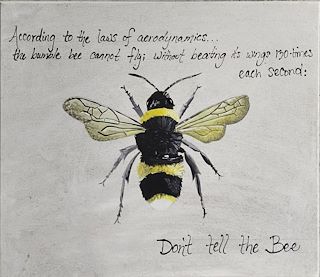 According to the laws of aerodynamics...
the bumble bee cannot fly; without beating its wings 130-times
each second:
Don't tell the Bee